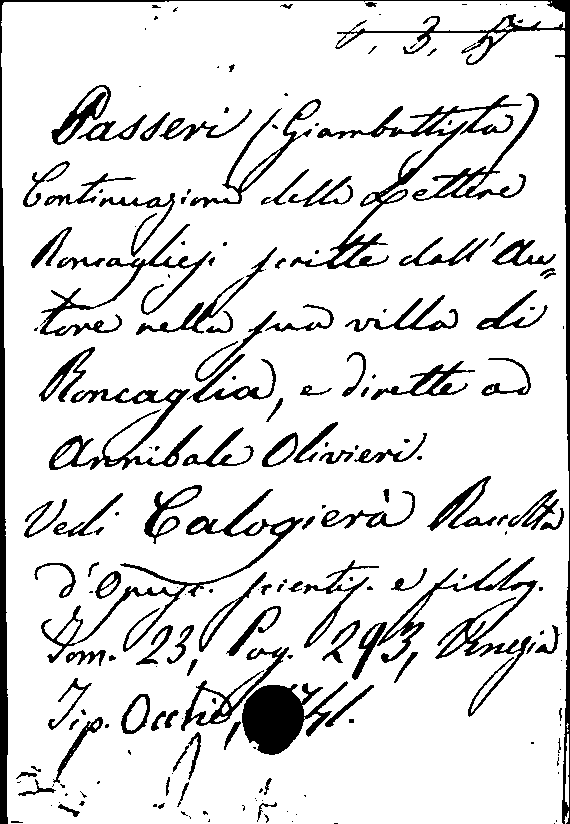 Passeri (Giambattista)
Continuazione delle Lettere
Roncagliesi scritte dall'Au=
tore nella sua villa di
Roncaglia, e dirette ad
Annibale Olivieri.
Vedi Calogierà Raccolta
d'Opusc. scientif. e filolog.
Tom. 23, Pag. 293, Venezia
Tip. Occhi, 1741.